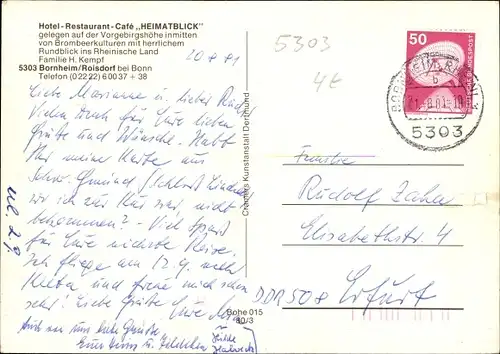 Hotel-Restaurant-Café „HEIMATBLICK"
gelegen auf der Vorgebirgshöhe inmitten
von Brombeerkulturen mit herrlichem
Rundblick ins Rheinische Land
Familie H. Kempf
5303 Bornheim/Roisdorf bei Bonn
Telefon (02222) 60037 + 38
20.8.81
Liebe Marianne u. lieber Rudi
Vielen Dank für Eure lieben
Grüße und Wünsche. Habt
Ihr meine Karte aus
Schw. Gmünd / Schloß Lindach
wo ich zur Kur war, nicht
bekommen? - Viel Spaß
für Eure nächste Reise.
Ich fliege am 12.9. nach
und freue mich schon
sehr! Liebe Grüße Eure
Auch von uns liebe Grüße
Eure
Cramers Kunstanstalt Dortmund
Bohe 015
80/3
5303
50
DEUTSCHE BUNDESPOST
BORNHEIM, RHEINL
b
21.-8.81-18
5303
Familie
Rudolf Zahn
Elisabethstr. 4
DDR 508 Erfurt